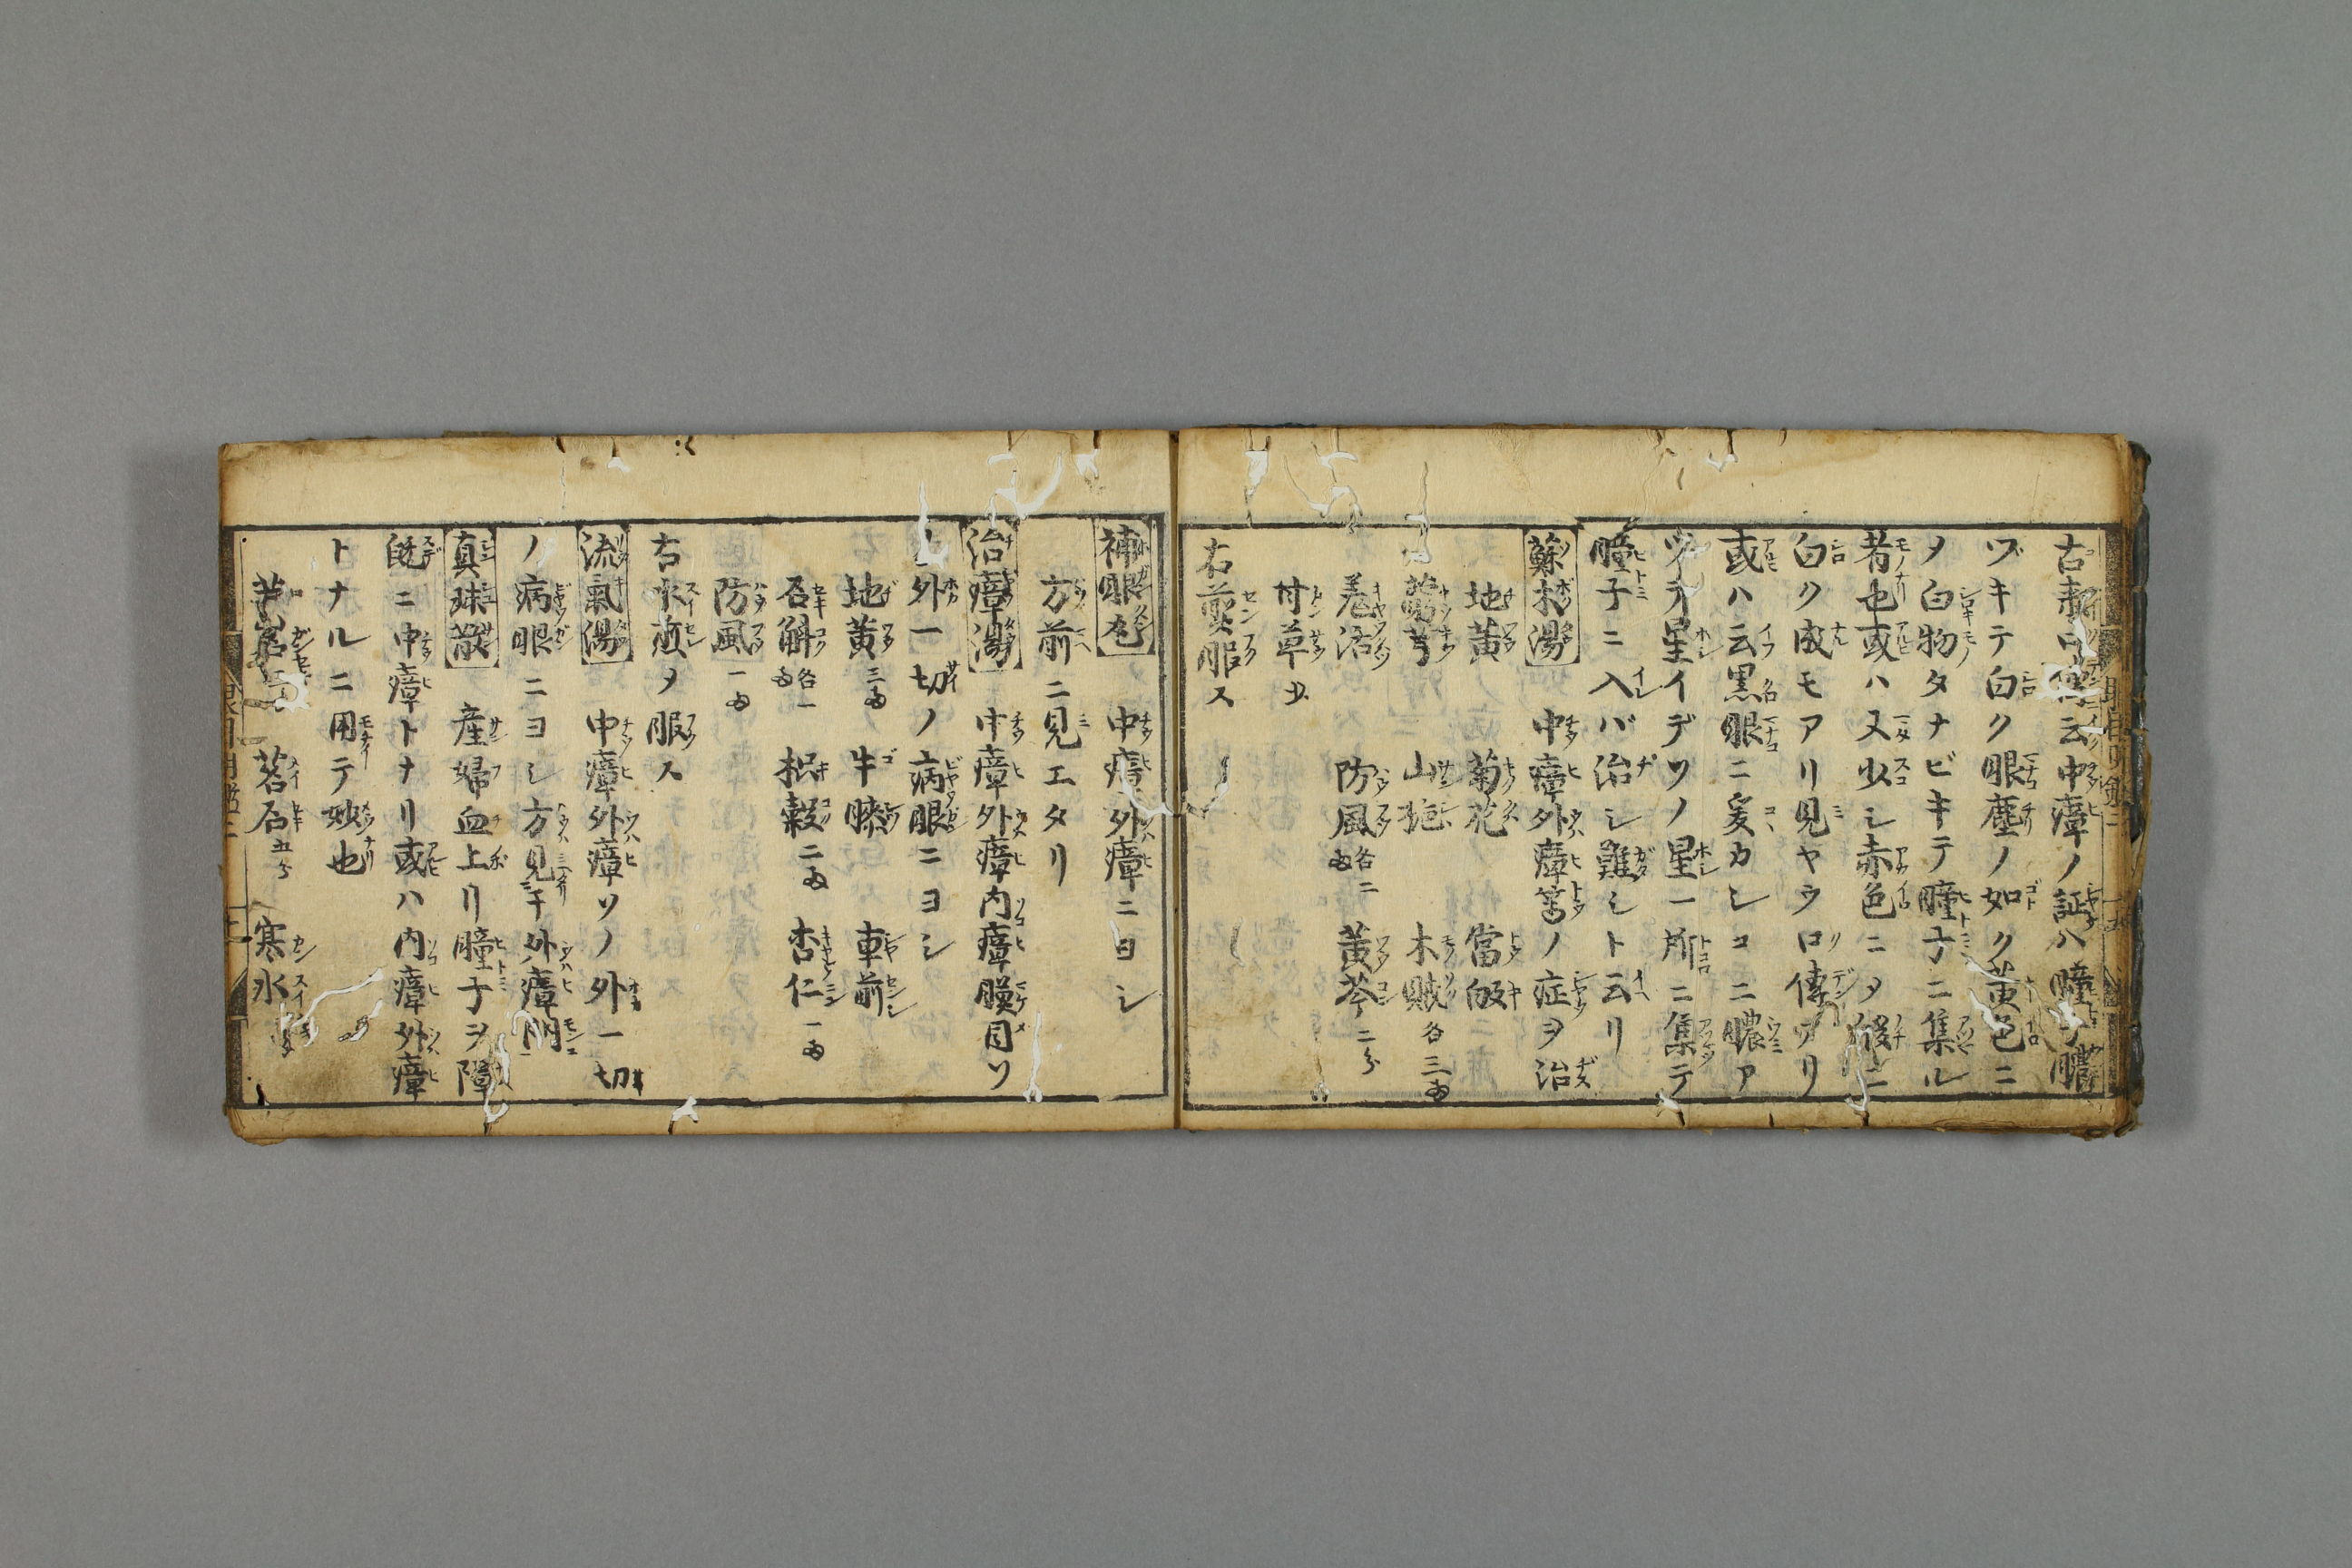 云中瘴ノ証ハ瞳子膿
ヅキテ白ク眼塵ノ如ク黄色ニ
ノ白物タナビキテ瞳子ニ集ル
者也或ハ又少シ赤色ニタ
白ク成モアリ見ヤウ口傳アリ
或ハ云黒眼ニ爰カシコニ膿ア
ツテ星イデソノ星一所ニ集テ
瞳子ニ入バ治シ難シト云リ
蘇木湯 中瘴外瘴等ノ症ヲ治
地黄 菊花 當皈
山梔 木賊各三匁
羗活 防風各二匁 黄芩二分
甘草少
右煎服ス
補眼丸 中瘴外瘴ニヨシ
方前ニ見エタリ
治瘴湯 中瘴外瘴内瘴瞙目ソ
外一切ノ病眼ニヨシ
地黄三匁 牛膝 車前
石斛各一匁 枳穀二匁 杏仁一匁
防風一匁
右水煎ヲ服ス
流氣湯 中瘴外瘴ソノ外一切
ノ病眼ニヨシ方見于外瘴門
真珠散 産婦血上リ瞳子ヲ障
既ニ中瘴トナリ或ハ内瘴外瘴
トナルニ用テ妙也
石五分 寒水